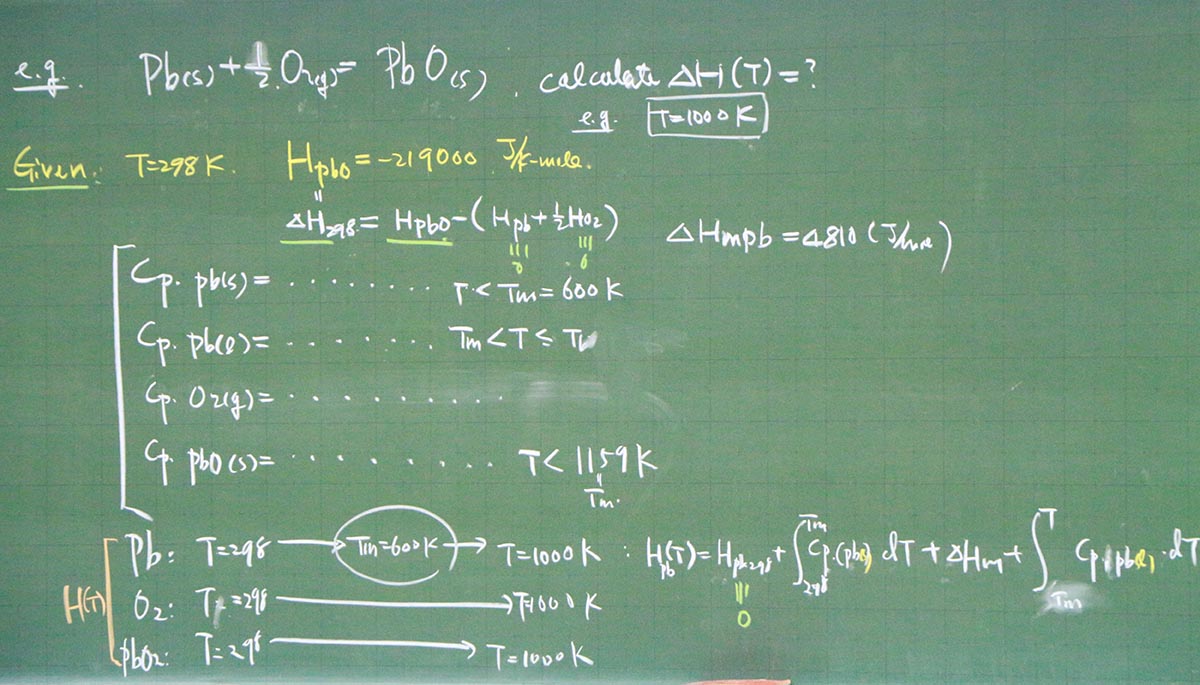 e.g. Pb(s) + 1/2 O2(g) = PbO(s) , calculate ΔH(T) = ?
e.g. T=1000K
Given: T=298K. HPbO = -219000 J/K-mole.
||
ΔH298 = HPbO - (HPb + 1/2 HO2) ΔHmpb = 4810 (J/mole)
||| |||
0 0
Cp. pb(s) = . . . . . . . . T < Tm = 600K
Cp. pb(l) = . . . . . . . Tm < T ≤ Tb
Cp. O2(g) = . . . . . . . . . .
Cp. pbO(s) = . . . . . . . . T < 1159K
||
Tm.
Pb: T=298 → Tm=600K → T=1000K : Hpb(T) = Hpb298 + ∫298Tm Cp.(pb(s)) dT + ΔHm + ∫TmT Cp.(pb(l)) . dT
|||
0
H(T)
O2: T=298 → T=1000K
pbO2: T=298 → T=1000K